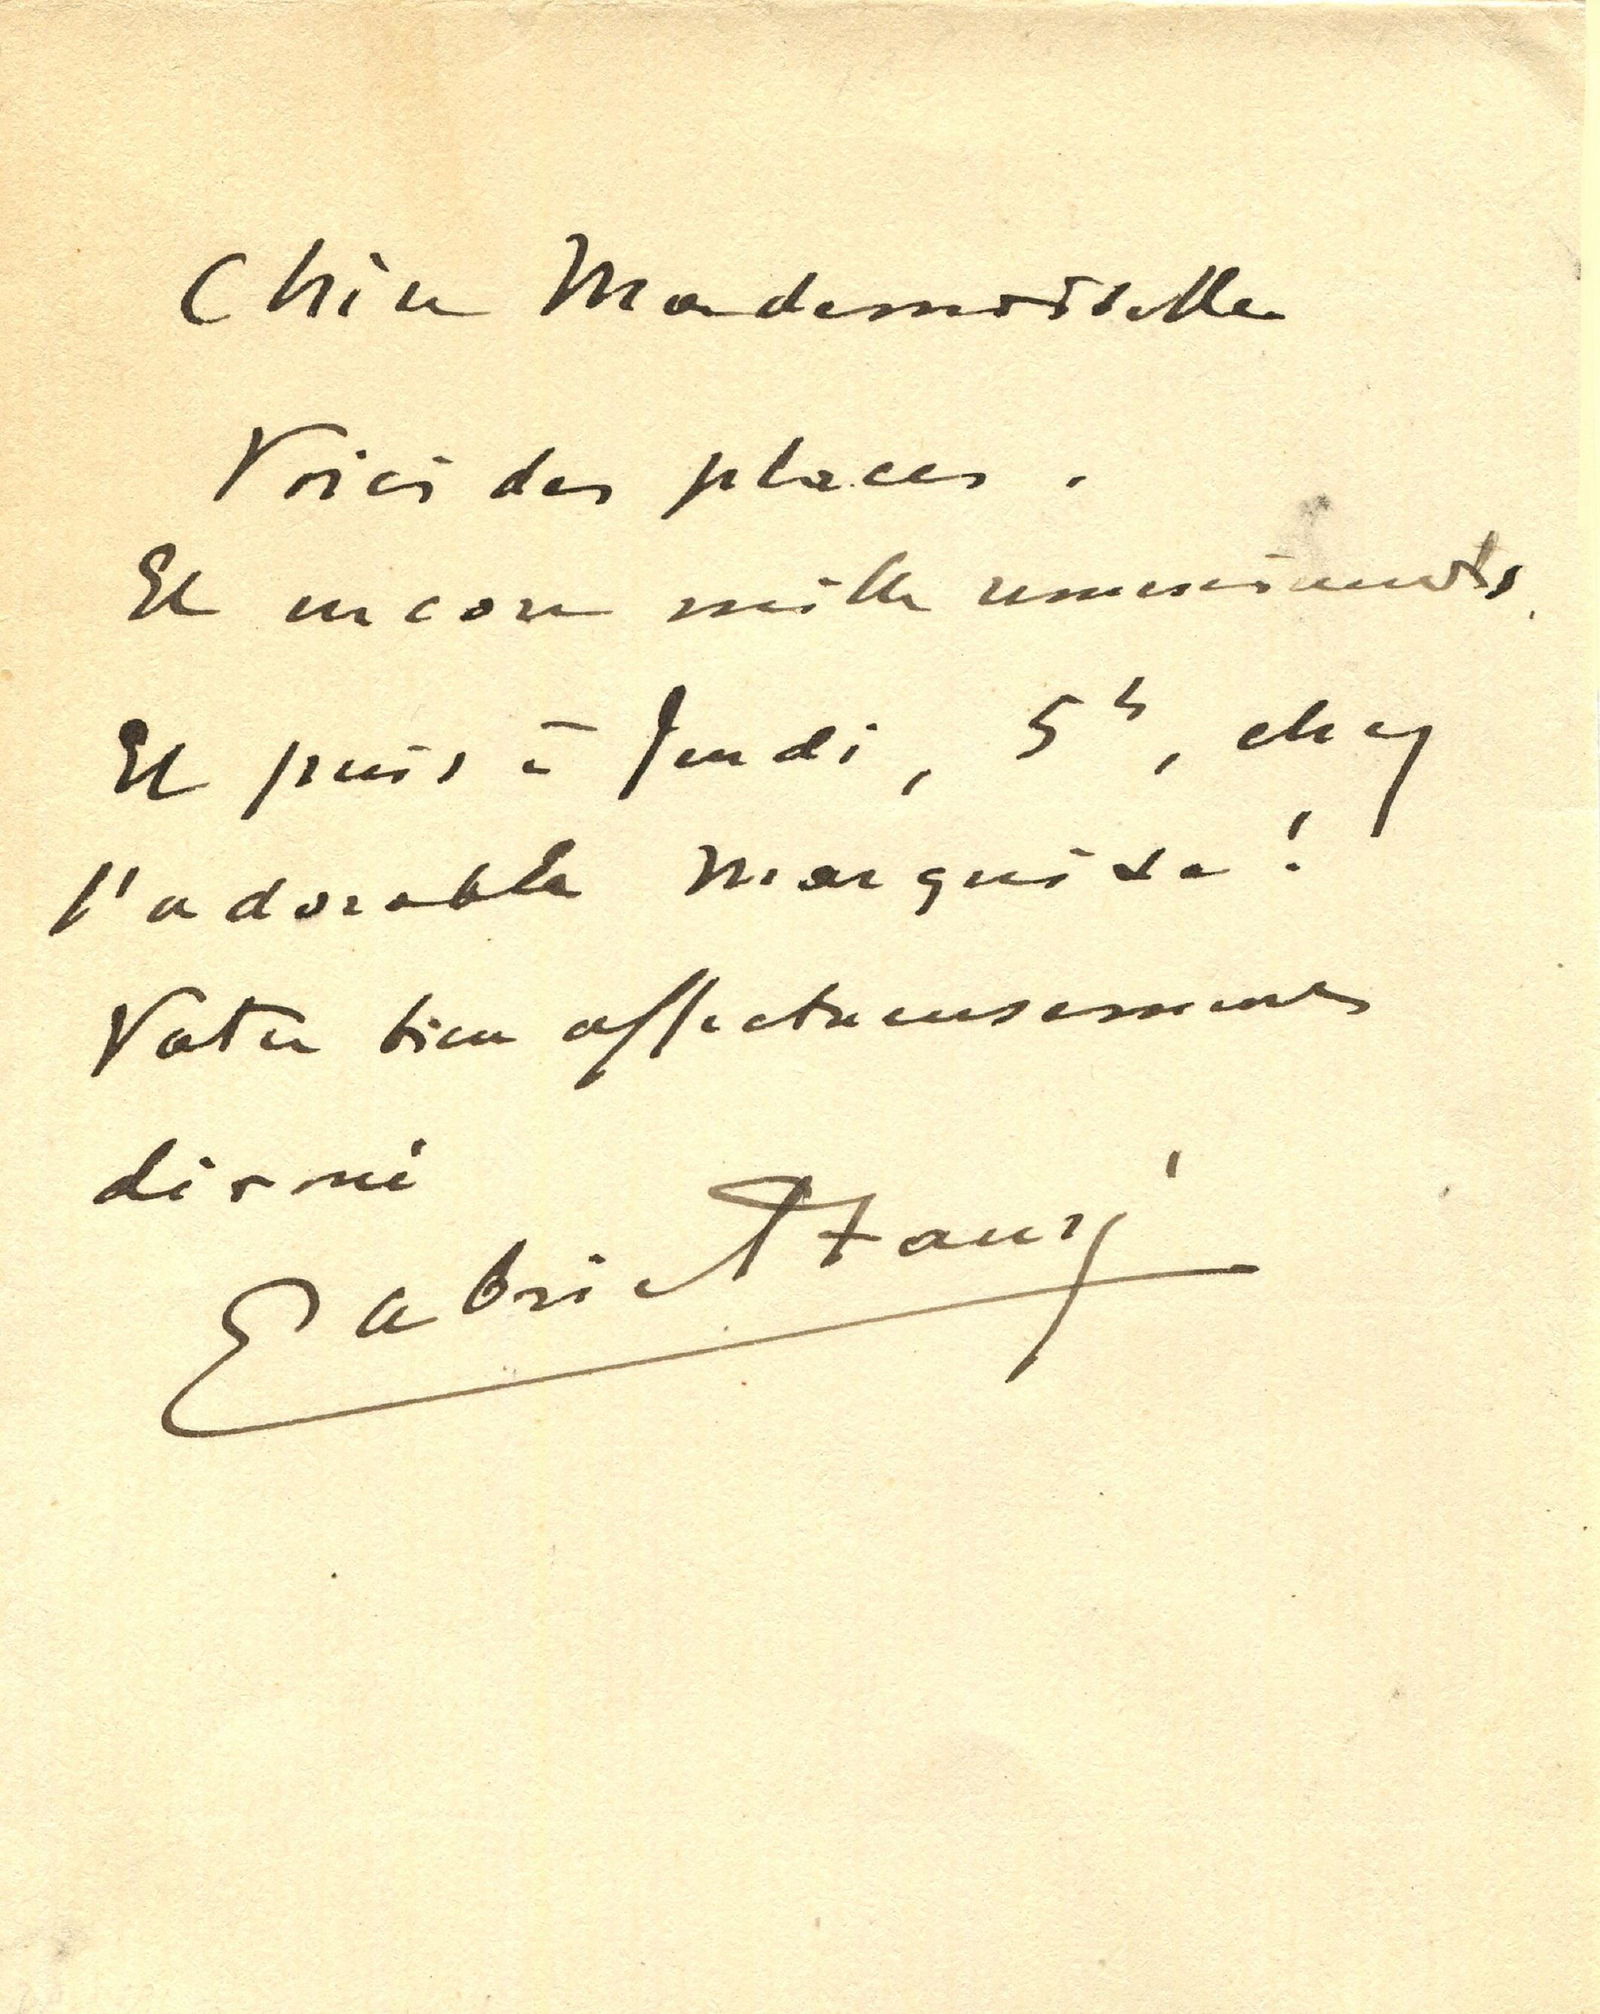 Chère Mademoiselle
Voici des places.
Et encore mille remerciements.
Et puis à Jeudi, 5h, chez
l'adorable Marquise !
Votre bien affectueusement
dévoué
Gabriel Fauré